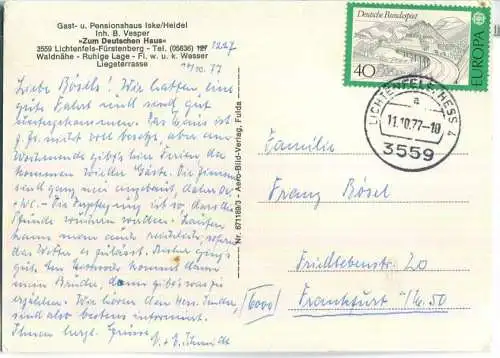 Gast- u. Pensionshaus Iske/Heidel
Inh. B. Vesper
»Zum Deutschen Haus«
3559 Lichtenfels-Fürstenberg - Tel. (05636) 127 1227
Waldnähe - Ruhige Lage - Fl. w. u. k. Wasser
Liegeterrasse
10.77
Liebe Bösels! Wir hatten eine
gute Fahrt und sind gut
untergekommen. Das Haus ist
z. Zt. nicht voll besetzt, aber am
Wochenende gibt's hier Ferien da
kommen wieder Gäste. Die Zimmer
sind ganz neu angebaut, daher Du.
+ WC. Die Verpflegung ist so, dass die
Pfunde wachsen werden. Laufen
kann man auch reichlich, sofern
das Wetter es zulässt. Bisher ging's
gut. Am Mittwoch kommt dann
mein Bruder, dann gibt's was zu
erzählen. Wir hören den Hess. Sender,
sind also bestens informiert.
Ihnen herzl. Grüsse
Schmidt
Nr. 671189/3 - Aero-Bild-Verlag, Fulda
Deutsche Bundespost
40
EUROPA
LICHTENFELS, HESS 4
a
11.10.77-10
3559
Familie
Franz Bösel
Friedlebenstr. 20
(6000) Frankfurt /M. 50